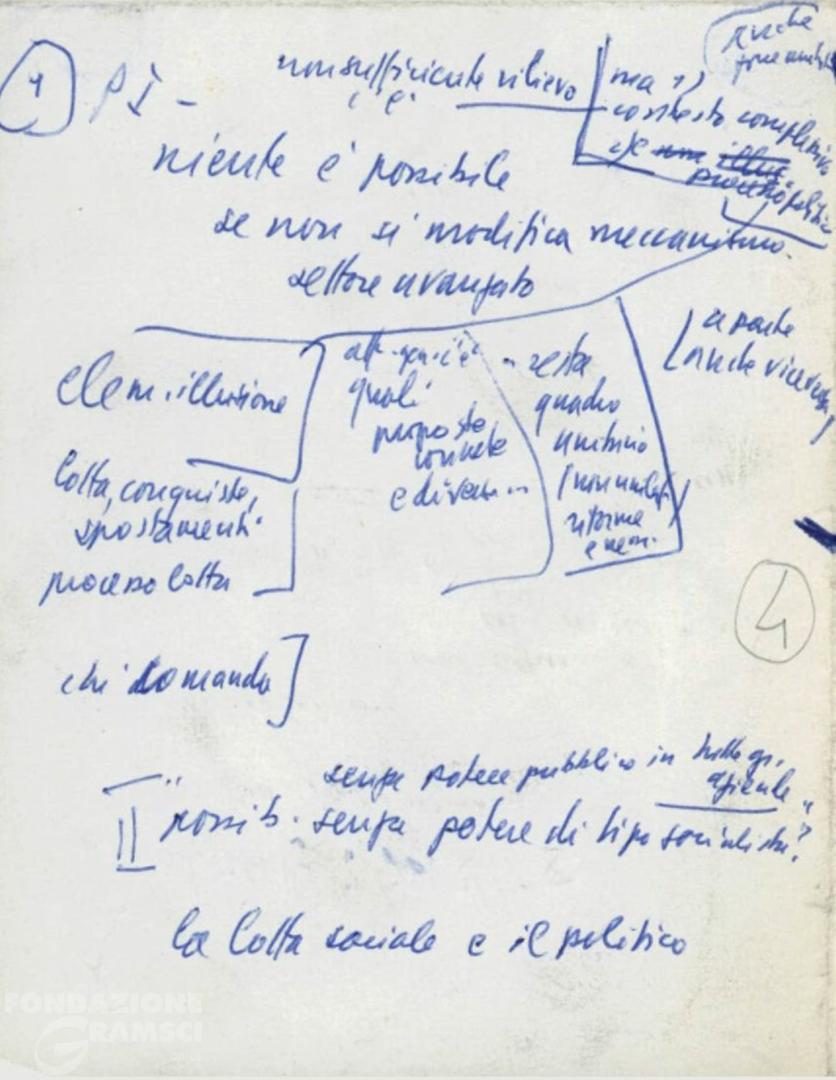 4
PI -
non sufficiente rilievo
c'è
ma
contesto complessivo
politico
anche
niente è possibile
se non si modifica meccanismo
settore avanzato
a parte
anche viceversa
elem. illusione
quali
proposte
concrete
e diverse..
resta
quadro
unitario
riforme
e non.
lotta, conquiste,
spostamenti
processo lotta
4
chi comanda
senza potere pubblico in
aziende"
II "possib. senza potere di tipo socialista?
la lotta sociale e il politico
FONDAZIONE
GRAMSCI